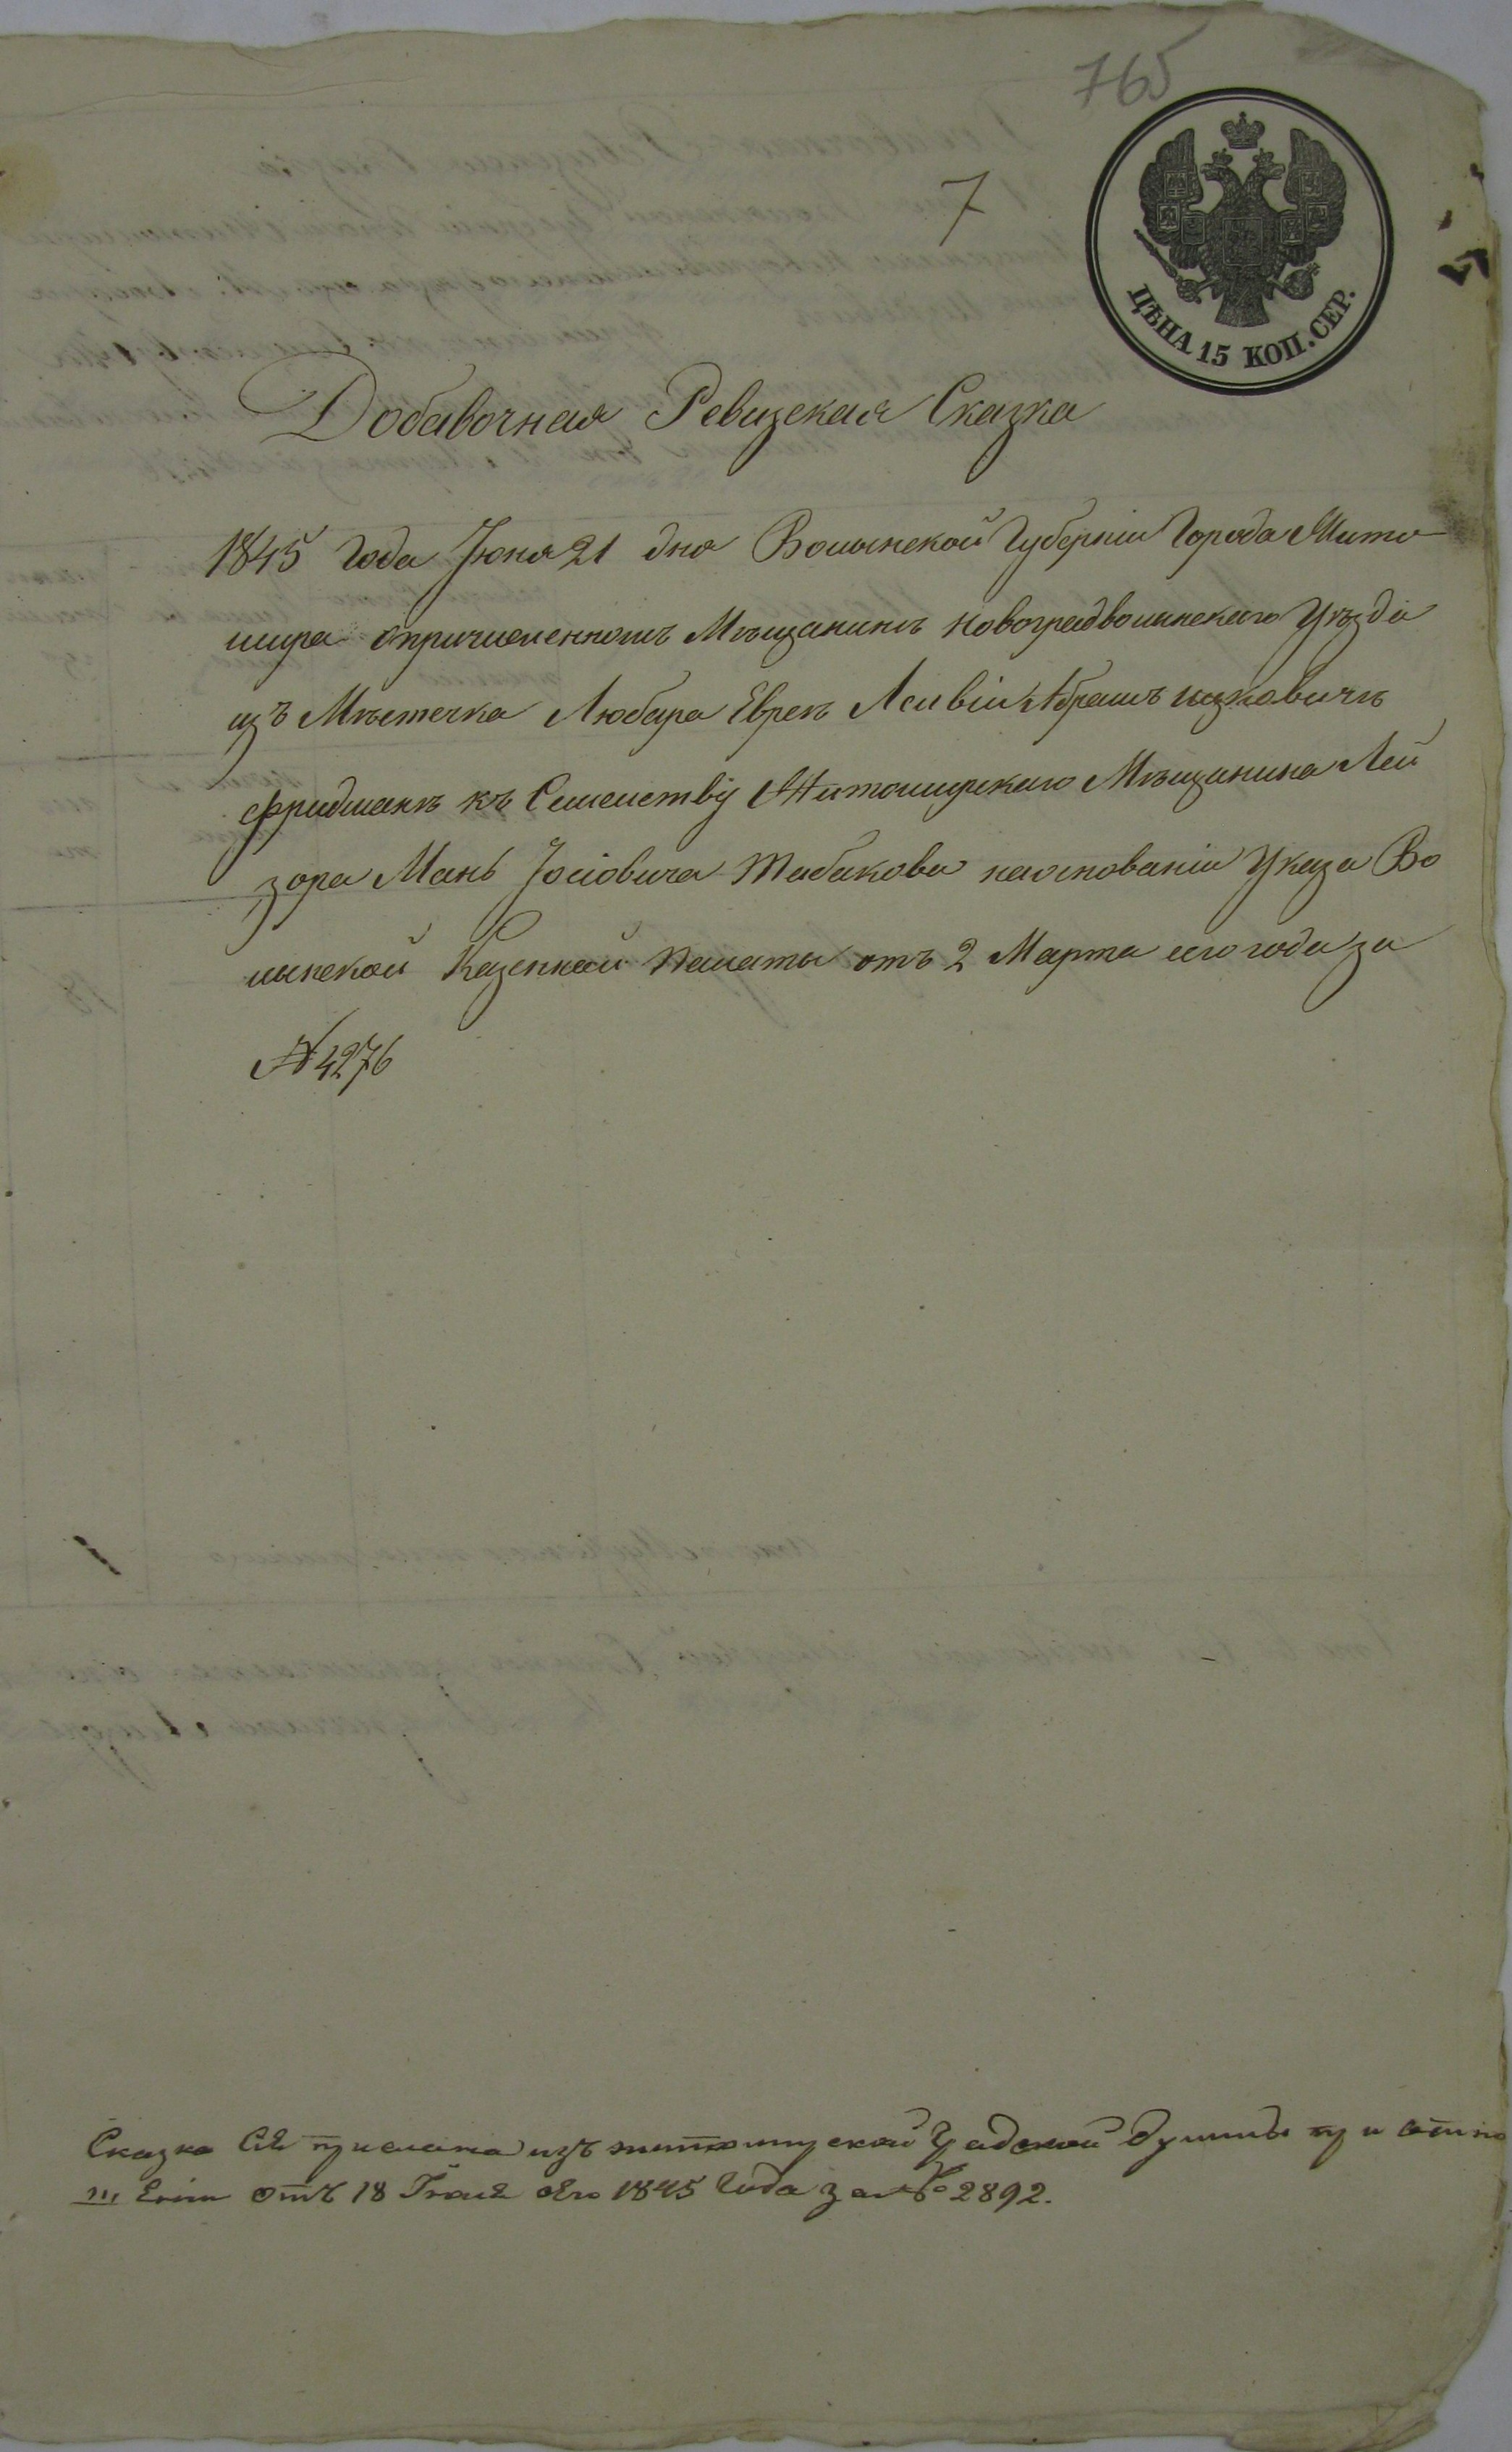 765
7
ЦѢНА 15 КОП. СЕР.
Добавочная Ревизская Сказка
1845 года Іюня 21 дня Волынской Губерніи Города Жито
мира опричисленномъ Мѣщанинѣ Новоградволынскаго Уѣзда
изъ Мѣстечка Любара Евреѣ Абрамъ Ицковичѣ
Фридманѣ къ Семейству Житомирскаго Мѣщанина Лей
зора Мань Іосіовича Табакова наоснованіи Указа Во
лынской Казенной Палаты отъ 2 Марта сего года за
№ 4276
Сказка сія прислана изъ житомирской Градской думы при отно
шеніи отъ 18 Іюля сего 1845 года за № 2892.